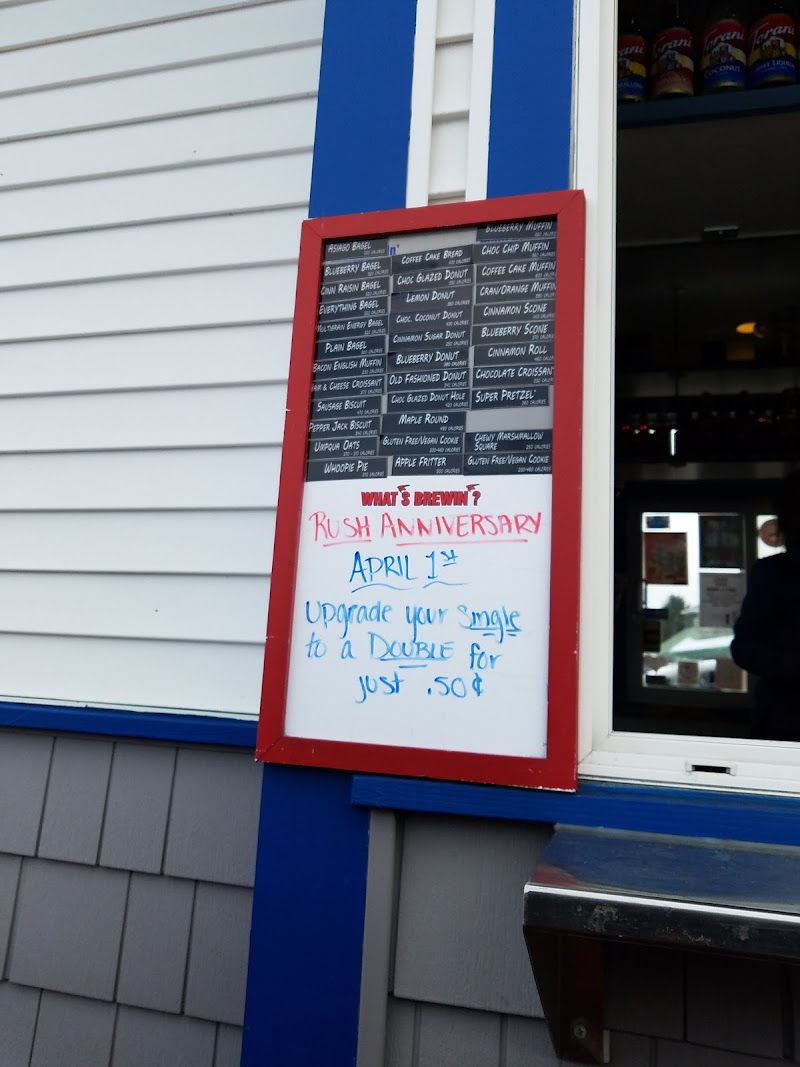 Torani
Torani
COCONUT
Torani
ASIAGO BAGEL
BLUEBERRY BAGEL
CINN RAISIN BAGEL
EVERYTHING BAGEL
MULTIGRAIN ENERGY BAGEL
PLAIN BAGEL
BACON ENGLISH MUFFIN
HAM & CHEESE CROISSANT
SAUSAGE BISCUIT
PEPPER JACK BISCUIT
UMPQUA OATS
WHOOPIE PIE
COFFEE CAKE BREAD
CHOC GLAZED DONUT
LEMON DONUT
CHOC. COCONUT DONUT
CINNAMON SUGAR DONUT
BLUEBERRY DONUT
OLD FASHIONED DONUT
CHOC GLAZED DONUT HOLE
MAPLE ROUND
GLUTEN FREE/VEGAN COOKIE
APPLE FRITTER
BLUEBERRY MUFFIN
CHOC CHIP MUFFIN
COFFEE CAKE MUFFIN
CRAN/ORANGE MUFFIN
CINNAMON SCONE
BLUEBERRY SCONE
CINNAMON ROLL
CHOCOLATE CROISSANT
SUPER PRETZEL
CHEWY MARSHMALLOW
SQUARE
GLUTEN FREE/VEGAN COOKIE
WHAT'S BREWIN'?
RUSH ANNIVERSARY
APRIL 1ST
Upgrade your Single
to a DOUBLE for
just .50¢